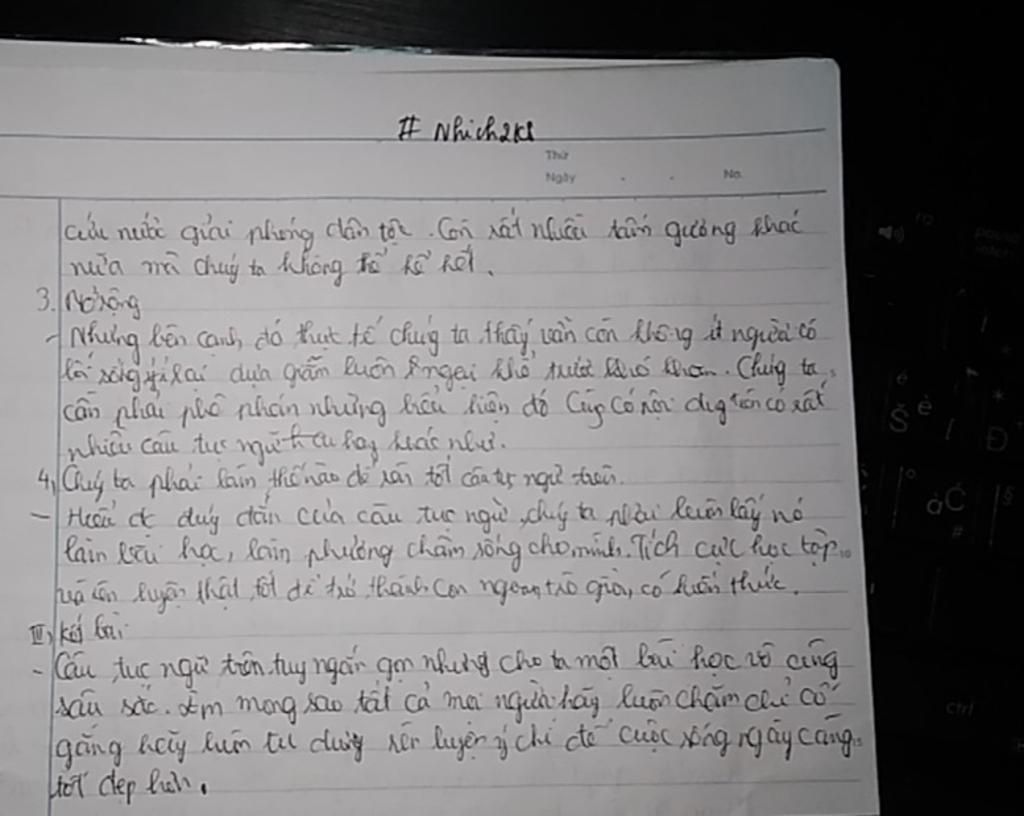 # Nhich2k8
Thứ
Ngày . . No.
cứu nước giải phóng dân tộc. Còn rất nhiều tấm gương khác
nữa mà chúg ta không thể kể hết.
3. Mở rộng
- Nhưng bên cạnh đó thực tế chúg ta thấy vẫn còn không ít người có
lối sống ỷ lại dựa giẫm luôn ngại khổ trước khó khăn. Chúg ta
cần phải phê phán những biểu hiện đó Cùg có nội dug trên có rất
nhiều câu tục ngữ hay khác như.
4, Chúg ta phải làm thế nào để rèn tốt câu tục ngữ trên.
- Hiểu đc đúg đắn của câu tục ngữ, chúg ta phải luôn lấy nó
làm bài học, làm phương châm sống cho mình. Tích cực học tập
và rèn luyện thật tốt để trở thành con ngoan trò giỏi, có kiến thức.
III, Kết bài
- Câu tục ngữ trên tuy ngắn gọn nhưng cho ta một bài học vô cùng
sâu sắc. Em mong sao tất cả mọi người hãy luôn chăm chỉ cố
gắng hãy luôn tu dưỡng rèn luyện ý chí để cuộc sống ngày càng
tốt đẹp hơn.
pause
ctrl